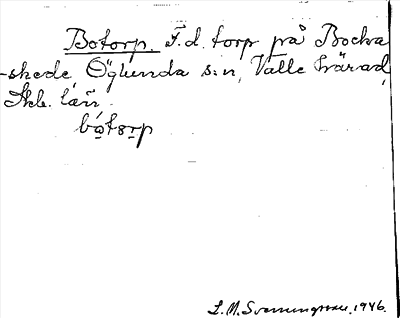 Botorp. F.d. torp på Bocka
-skede, Öglunda s:n, Valle härad,
Skb. län.
bo̱tɜrp
L. M. Svenungsson. 1946.